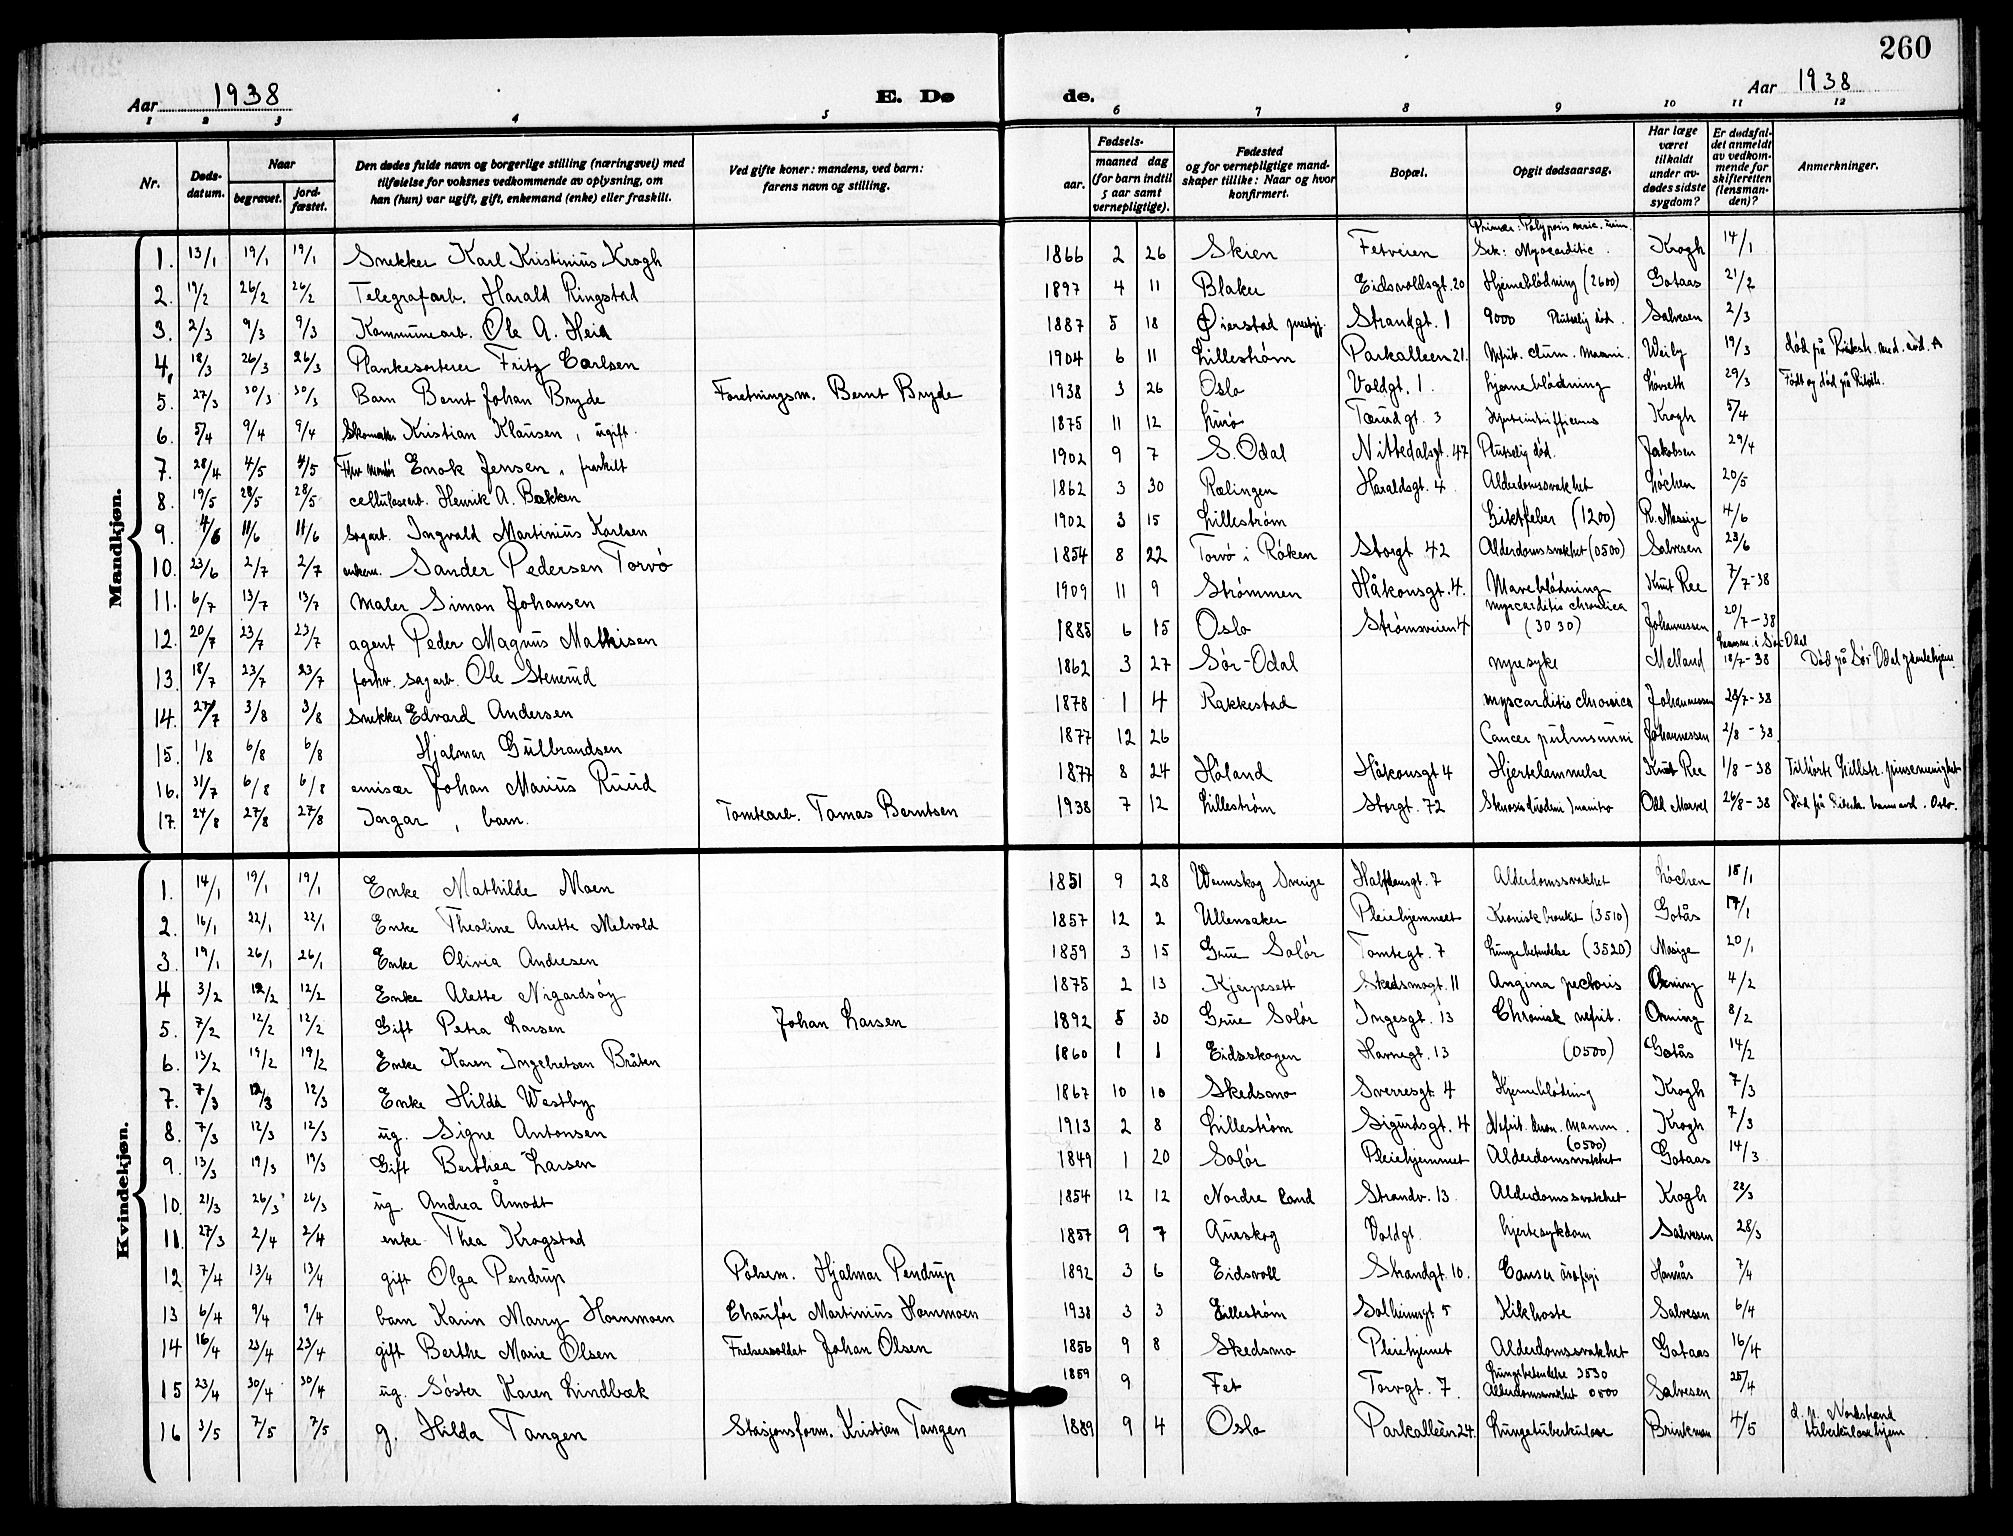 260
Aar 1938 E. Dø de. Aar 1938
1 2 3 4 5 6 7 8 9 10 11 12
Nr. Døds-datum. Naar begravet. jord-fæstet. Den dødes fulde navn og borgerlige stilling (næringsvei) med tilføielse for voksnes vedkommende av oplysning, om han (hun) var ugift, gift, enkemand (enke) eller fraskilt. Ved gifte koner: mandens, ved barn: farens navn og stilling. Fødsels- aar. maaned dag (for barn indtil 5 aar samt vernepligtige). Fødested og for vernepligtige mand-skaper tillike: Naar og hvor konfirmert. Bopæl. Opgit dødsaarsag. Har læge været tilkaldt under av-dødes sidste sygdom? Er dødsfal-det anmeldt av vedkom-mende for skifteretten (lensman-den)? Anmerkninger.
Mandkjøn.
1. 13/1 19/1 19/1 Snekker Karl Kristinius Krogh 1866 2 26 Skien Fetveien Sek: Myocarditis. Krogh 14/1
2. 19/2 26/2 26/2 Telegrafarb. Harald Ringstad 1897 4 11 Blaker Eidsvoldsgt. 20 Hjerneblödning (2600) Gotaas 21/2
3. 2/3 9/3 9/3 Kommunearb. Ole A. Heia 1887 5 18 Øierstad prestgj. Strandgt. 1 9000 Plutselig död. Salvesen 2/3
4. 18/3 26/3 26/3 Plankesorterer Fritz Carlsen 1904 6 11 Lilleström Parkalleen 21. Weiby 19/3 död på Rikshosp. med. avd. A
5. 27/3 30/3 30/3 Barn Bernt Johan Bryde Forretningsm. Bernt Bryde 1938 3 26 Oslo Voldgt. 1. hjerneblödning 29/3 Född og död på
6. 5/4 9/4 9/4 Skomaker Kristian Klausen, ugift. 1875 11 12 Lurö Tærudgt. 3 Krogh 5/4
7. 28/4 4/5 4/5 Enok Jensen. fraskilt 1902 9 7 S. Odal Nittedalsgt. 47 Plutselig död. Jakobsen 29/4
8. 19/5 28/5 28/5 cellulosearb. Henrik A. Bakken 1862 3 30 Rælingen Haraldsgt. 4 Alderdomssvakhet Löchen 20/5
9. 4/6 11/6 11/6 Sagarb. Ingvald Martinius Karlsen 1902 3 15 Lilleström Giktfeber (1200) R. Mosige 4/6
10. 23/6 2/7 2/7 enkem. Sander Pedersen Torvö 1854 8 22 Torvö i Röken Storgt 42 Alderdomssvakhet (0500) Salvesen 23/6
11. 6/7 13/7 13/7 Maler Simon Johansen 1909 11 9 Strömmen Håkonsgt. 4. Maveblödning Knut Ree 7/7-38
12. 20/7 23/7 23/7 agent Peder Magnus Mathisen 1885 6 15 Oslo Strömsveien 4 myocarditis chronica (3030) Johannessen 20/7-38
13. 18/7 23/7 23/7 forhv. sagarb. Ole Stenerud 1862 3 27 Sör-Odal nyresyke Melland Lensm. i Sör-Odal 18/7-38 Död på Sör Odal gamlehjem.
14. 27/7 3/8 3/8 Snekker Edvard Andersen 1878 1 4 Rakkestad myocarditis chronica Johannessen 28/7-38
15. 1/8 6/8 6/8 Hjalmar Gulbrandsen 1877 12 26 Cancer pulmonum Johannessen 2/8-38.
16. 31/7 6/8 6/8 emisær Johan Marius Ruud 1877 8 24 Höland Håkonsgt 4 Hjertelammelse Knut Ree 1/8-38 Tilhörte Lillestr. pinsemenighet
17. 24/8 27/8 27/8 Jorgar, barn. Tomtearb. Tomas Berntsen 1938 7 12 Lilleström Storgt. 72 Odd Marvel 26/8-38 Död på Oslo.
Kvindekjøn.
1. 14/1 19/1 19/1 Enke Mathilde Moen 1851 9 28 Wermskog Sverige Halfdansgt. 7 Alderdomssvakhet Löchen 15/1
2. 16/1 22/1 22/1 Enke Theoline Anette Melvold 1857 12 2 Ullensaker Pleiehjemmet Kronisk bronkit (3510) Gotås 17/1
3. 19/1 26/1 26/1 Enke Olivia Andresen 1859 3 15 Grue Solör Tomtegt. 7 Lungebetendelse (3520) Mosige 20/1
4 3/2 12/2 12/2 Enke Alette Nigardsöy 1875 2 13 Kjerpesett Skedsmogt. 11 Angina pectoris Orning 4/2
5. 7/2 12/2 12/2 Gift Petra Larsen Johan Larsen 1892 5 30 Grue Solör Ingesgt. 13 Chronisk nefrit. Orning 8/2
6. 13/2 19/2 19/2 Enke Karen Ingebretsen Bråten 1860 1 1 Eidsskogen Havnegt. 13 (0500) Gotås 14/2
7. 7/3 12/3 12/3 Enke Hilda Westby 1867 10 10 Skedsmo Sverresgt. 4 Hjerneblödning Krogh 7/3
8. 7/3 12/3 12/3 ug. Signe Antonsen 1913 2 8 Lilleström Sigurdsgt. 4 Krogh 7/3
9. 13/3 19/3 19/3 Gift Berthea Larsen 1849 1 20 Solör Pleiehjemmet (0500) Alderdomssvakhet Gotaas 14/3
10. 21/3 26/3 26/3 ug. Andrea Åmodt 1854 12 12 Nordre Land Strandv. 13. Alderdomssvakhet Krogh 22/3
11. 27/3 2/4 2/4 enke Thea Krogstad 1857 9 7 Aurskog Voldgt. hjertesykdom Salvesen 28/3
12 7/4 13/4 13/4 gift Olga Pendrup Pölsem. Hjalmar Pendrup 1892 3 6 Eidsvoll Strandgt. 10. Hansås 7/4
13 6/4 9/4 9/4 barn Karin Marry Hornmoen Chauför Martinius Hornmoen 1938 3 3 Lilleström Solheimsgt 5 Kikhoste Salvesen 6/4
14 16/4 23/4 23/4 gift Berthe Marie Olsen Frelsessoldat Johan Olsen 1856 9 8 Skedsmo Pleiehjemet Alderdomssvakhet Gotaas 16/4
15 23/4 30/4 30/4 ug. Söster Karen Lindbæk 1859 9 Fet Torvgt. 7. Lungebetendelse 3530 Alderdomssvakhet 0500 Salvesen 25/4
16 3/5 7/5 7/5 g. Hilda Tangen Stasjonsform. Kristian Tangen 1889 9 4 Oslo Parkalleen 24. Lungetuberkulose Brinkman 4/5 d. p. Nordstrand tuberkulosehjem